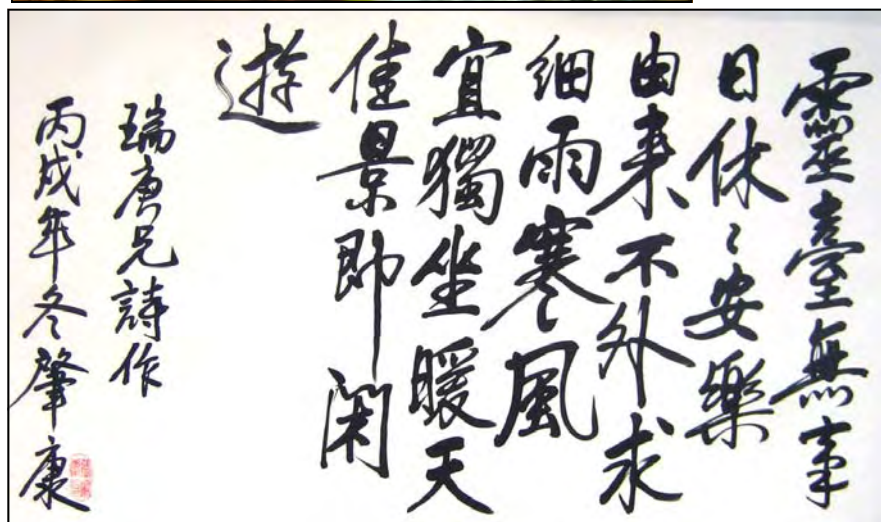 靈臺無事
日休〻安樂
由来不外求
細雨寒風
宜獨坐暖天
佳景即閑
遊
瑞庚兄詩作
丙戌年冬肇康